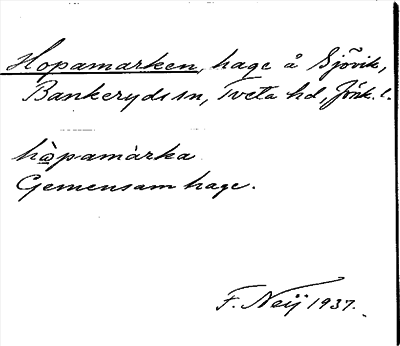 Hopamarken, hage å Sjövik,
Bankeryds sn, Tveta hd, Jönk. l.
hòpamàrka
Gemensam hage.
F. Neij 1937.